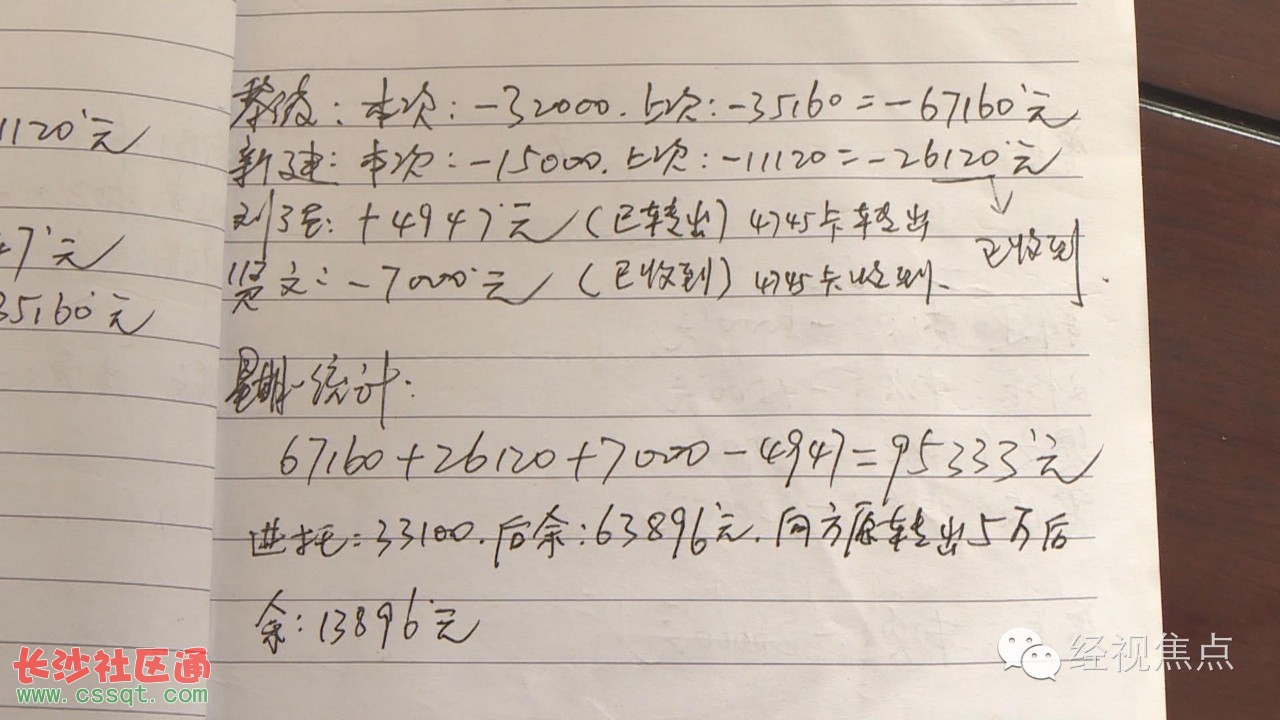 1120元
47元
35160元
黎俊:本次:-32000.上次:-35160=-67160元
新建:本次:-15000.上次:-11120=-26120元
刘:+4947元(已转出)4745卡转出
已收到.
贤文:-7000元(已收到)4745卡收到.
星期一统计:
67160+26120+7000-4947=95333元
进:33100.后余:63896元.向方原转出5万后
余:13896元
长沙社区通
www.cssqt.com
经视焦点